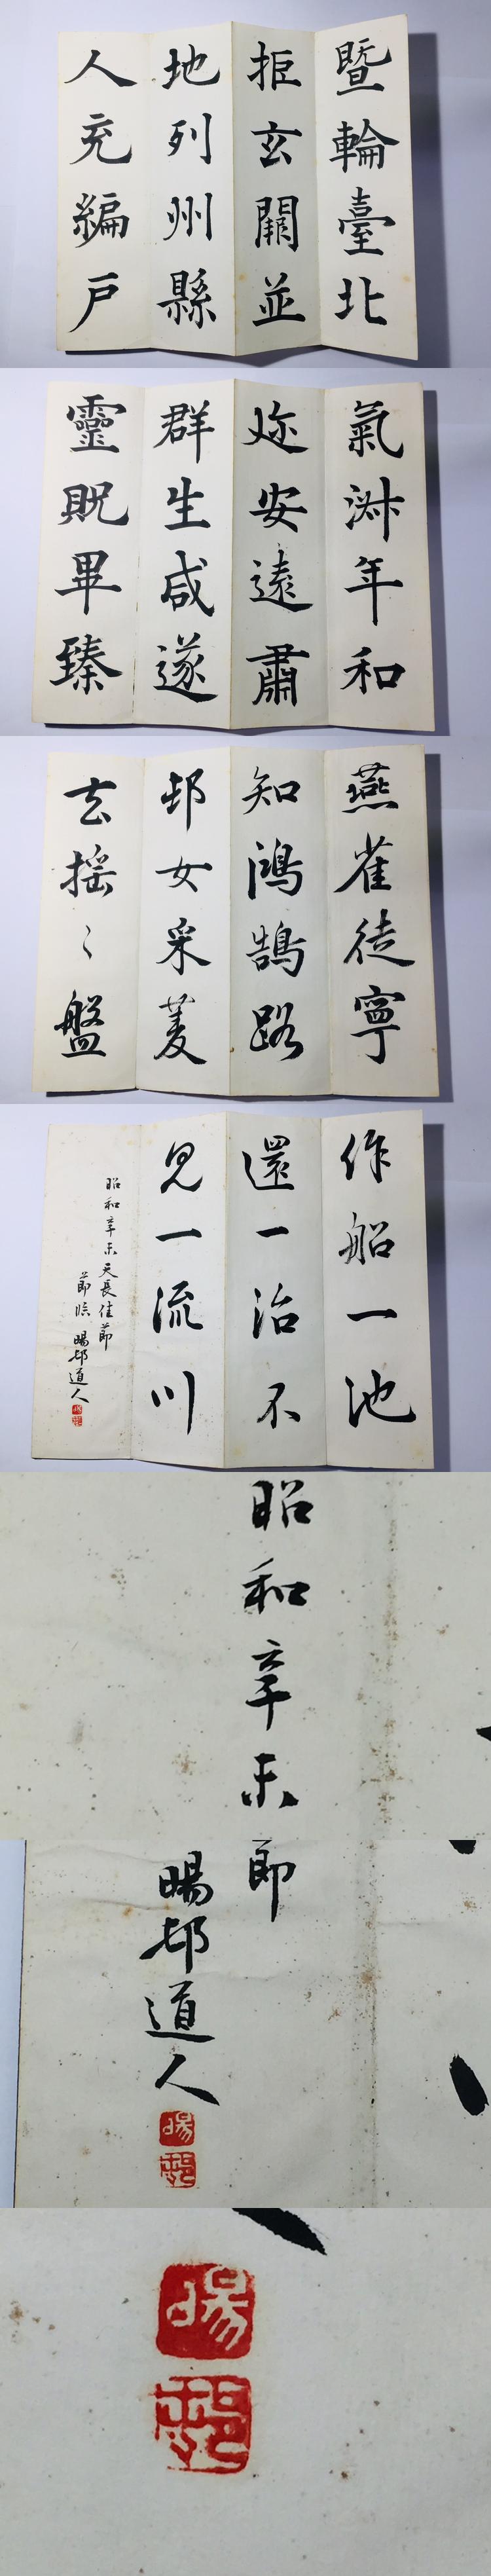 暨輪臺北
拒玄闕並
地列州縣
人充編戶
氣淑年和
迩安遠肅
群生咸遂
靈貺畢臻
燕雀徒寧
知鴻鵠路
邨女采菱
去揺〻盤
作船一池
還一沼不
見一流川
昭和辛未天長佳節
節臨 暘邨道人
暘邨
昭和辛未
節
暘邨道人
暘邨
暘邨